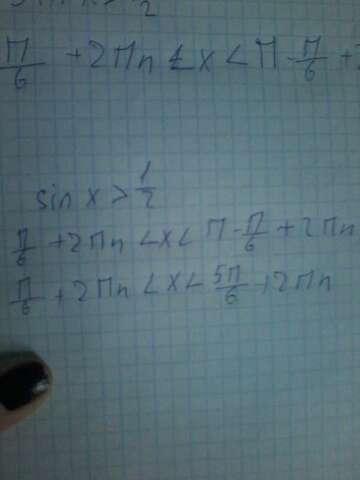 π/6 + 2πn < x < π - π/6 +
sin x > 1/2
π/6 + 2πn < x < π - π/6 + 2πn
π/6 + 2πn < x < 5π/6 + 2πn